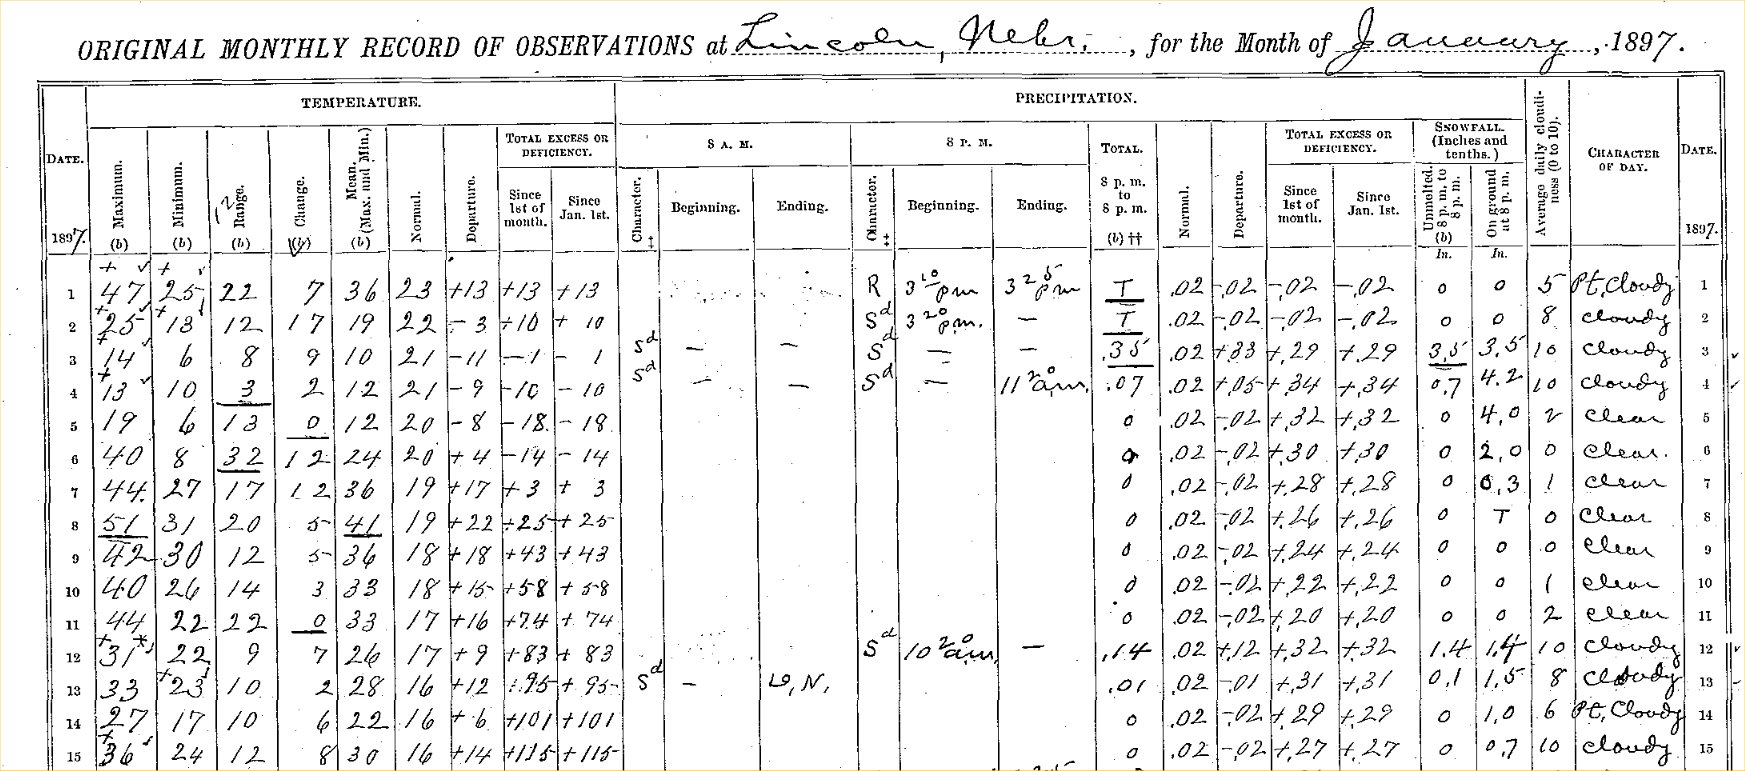 ORIGINAL MONTHLY RECORD OF OBSERVATIONS at Lincoln, Nebr., for the Month of January, 1897.
TEMPERATURE. PRECIPITATION.
DATE. 1897. Maximum. (b) Minimum. (b) 12 Range. (b) Change. (b) Mean. (Max. and Min.) (b) Normal. Departure. TOTAL EXCESS OR DEFICIENCY. Since 1st of month. Since Jan. 1st. 8 A. M. Character. ‡ Beginning. Ending. 8 P. M. Character. ‡ Beginning. Ending. TOTAL. 8 p. m. to 8 p. m. (b) †† Normal. Departure. TOTAL EXCESS OR DEFICIENCY. Since 1st of month. Since Jan. 1st. SNOWFALL. (Inches and tenths.) Unmelted. 8 p. m. to 8 p. m. (b) In. On ground at 8 p. m. In. Average daily cloudiness (0 to 10). CHARACTER OF DAY. DATE. 1897.
1 47 25 22 7 36 23 +13 +13 +13 R 3 10 pm 3 25 pm T .02 -.02 -.02 -.02 0 0 5 Pt. Cloudy 1
2 25 13 12 17 19 22 -3 +10 +10 Sd 3 20 p.m. — T .02 -.02 -.02 -.02 0 0 8 cloudy 2
3 14 6 8 9 10 21 -11 -1 -1 Sd — — Sd — — .35 .02 +.33 +.29 +.29 3.5 3.5 10 Cloudy 3
4 13 10 3 2 12 21 -9 -10 -10 Sd — — Sd — 11 20 a.m. .07 .02 +.05 +.34 +.34 0.7 4.2 10 cloudy 4
5 19 6 13 0 12 20 -8 -18 -18 0 .02 -.02 +.32 +.32 0 4.0 2 clear 5
6 40 8 32 12 24 20 +4 -14 -14 0 .02 -.02 +.30 +.30 0 2.0 0 clear. 6
7 44 27 17 12 36 19 +17 +3 +3 0 .02 -.02 +.28 +.28 0 0.3 1 clear 7
8 51 31 20 5 41 19 +22 +25 +25 0 .02 -.02 +.26 +.26 0 T 0 Clear 8
9 42 30 12 5 36 18 +18 +43 +43 0 .02 -.02 +.24 +.24 0 0 0 Clear 9
10 40 26 14 3 33 18 +15 +58 +58 0 .02 -.02 +.22 +.22 0 0 1 clear 10
11 44 22 22 0 33 17 +16 +74 +74 0 .02 -.02 +.20 +.20 0 0 2 clear 11
12 31 22 9 7 26 17 +9 +83 +83 Sd 10 20 a.m. — .14 .02 +.12 +.32 +.32 1.4 1.4 10 Cloudy 12
13 33 23 10 2 28 16 +12 +95 +95 Sd — D.N. .01 .02 -.01 +.31 +.31 0.1 1.5 8 Cloudy 13
14 27 17 10 6 22 16 +6 +101 +101 0 .02 -.02 +.29 +.29 0 1.0 6 Pt. Cloudy 14
15 36 24 12 8 30 16 +14 +115 +115 0 .02 -.02 +.27 +.27 0 0.7 10 cloudy 15